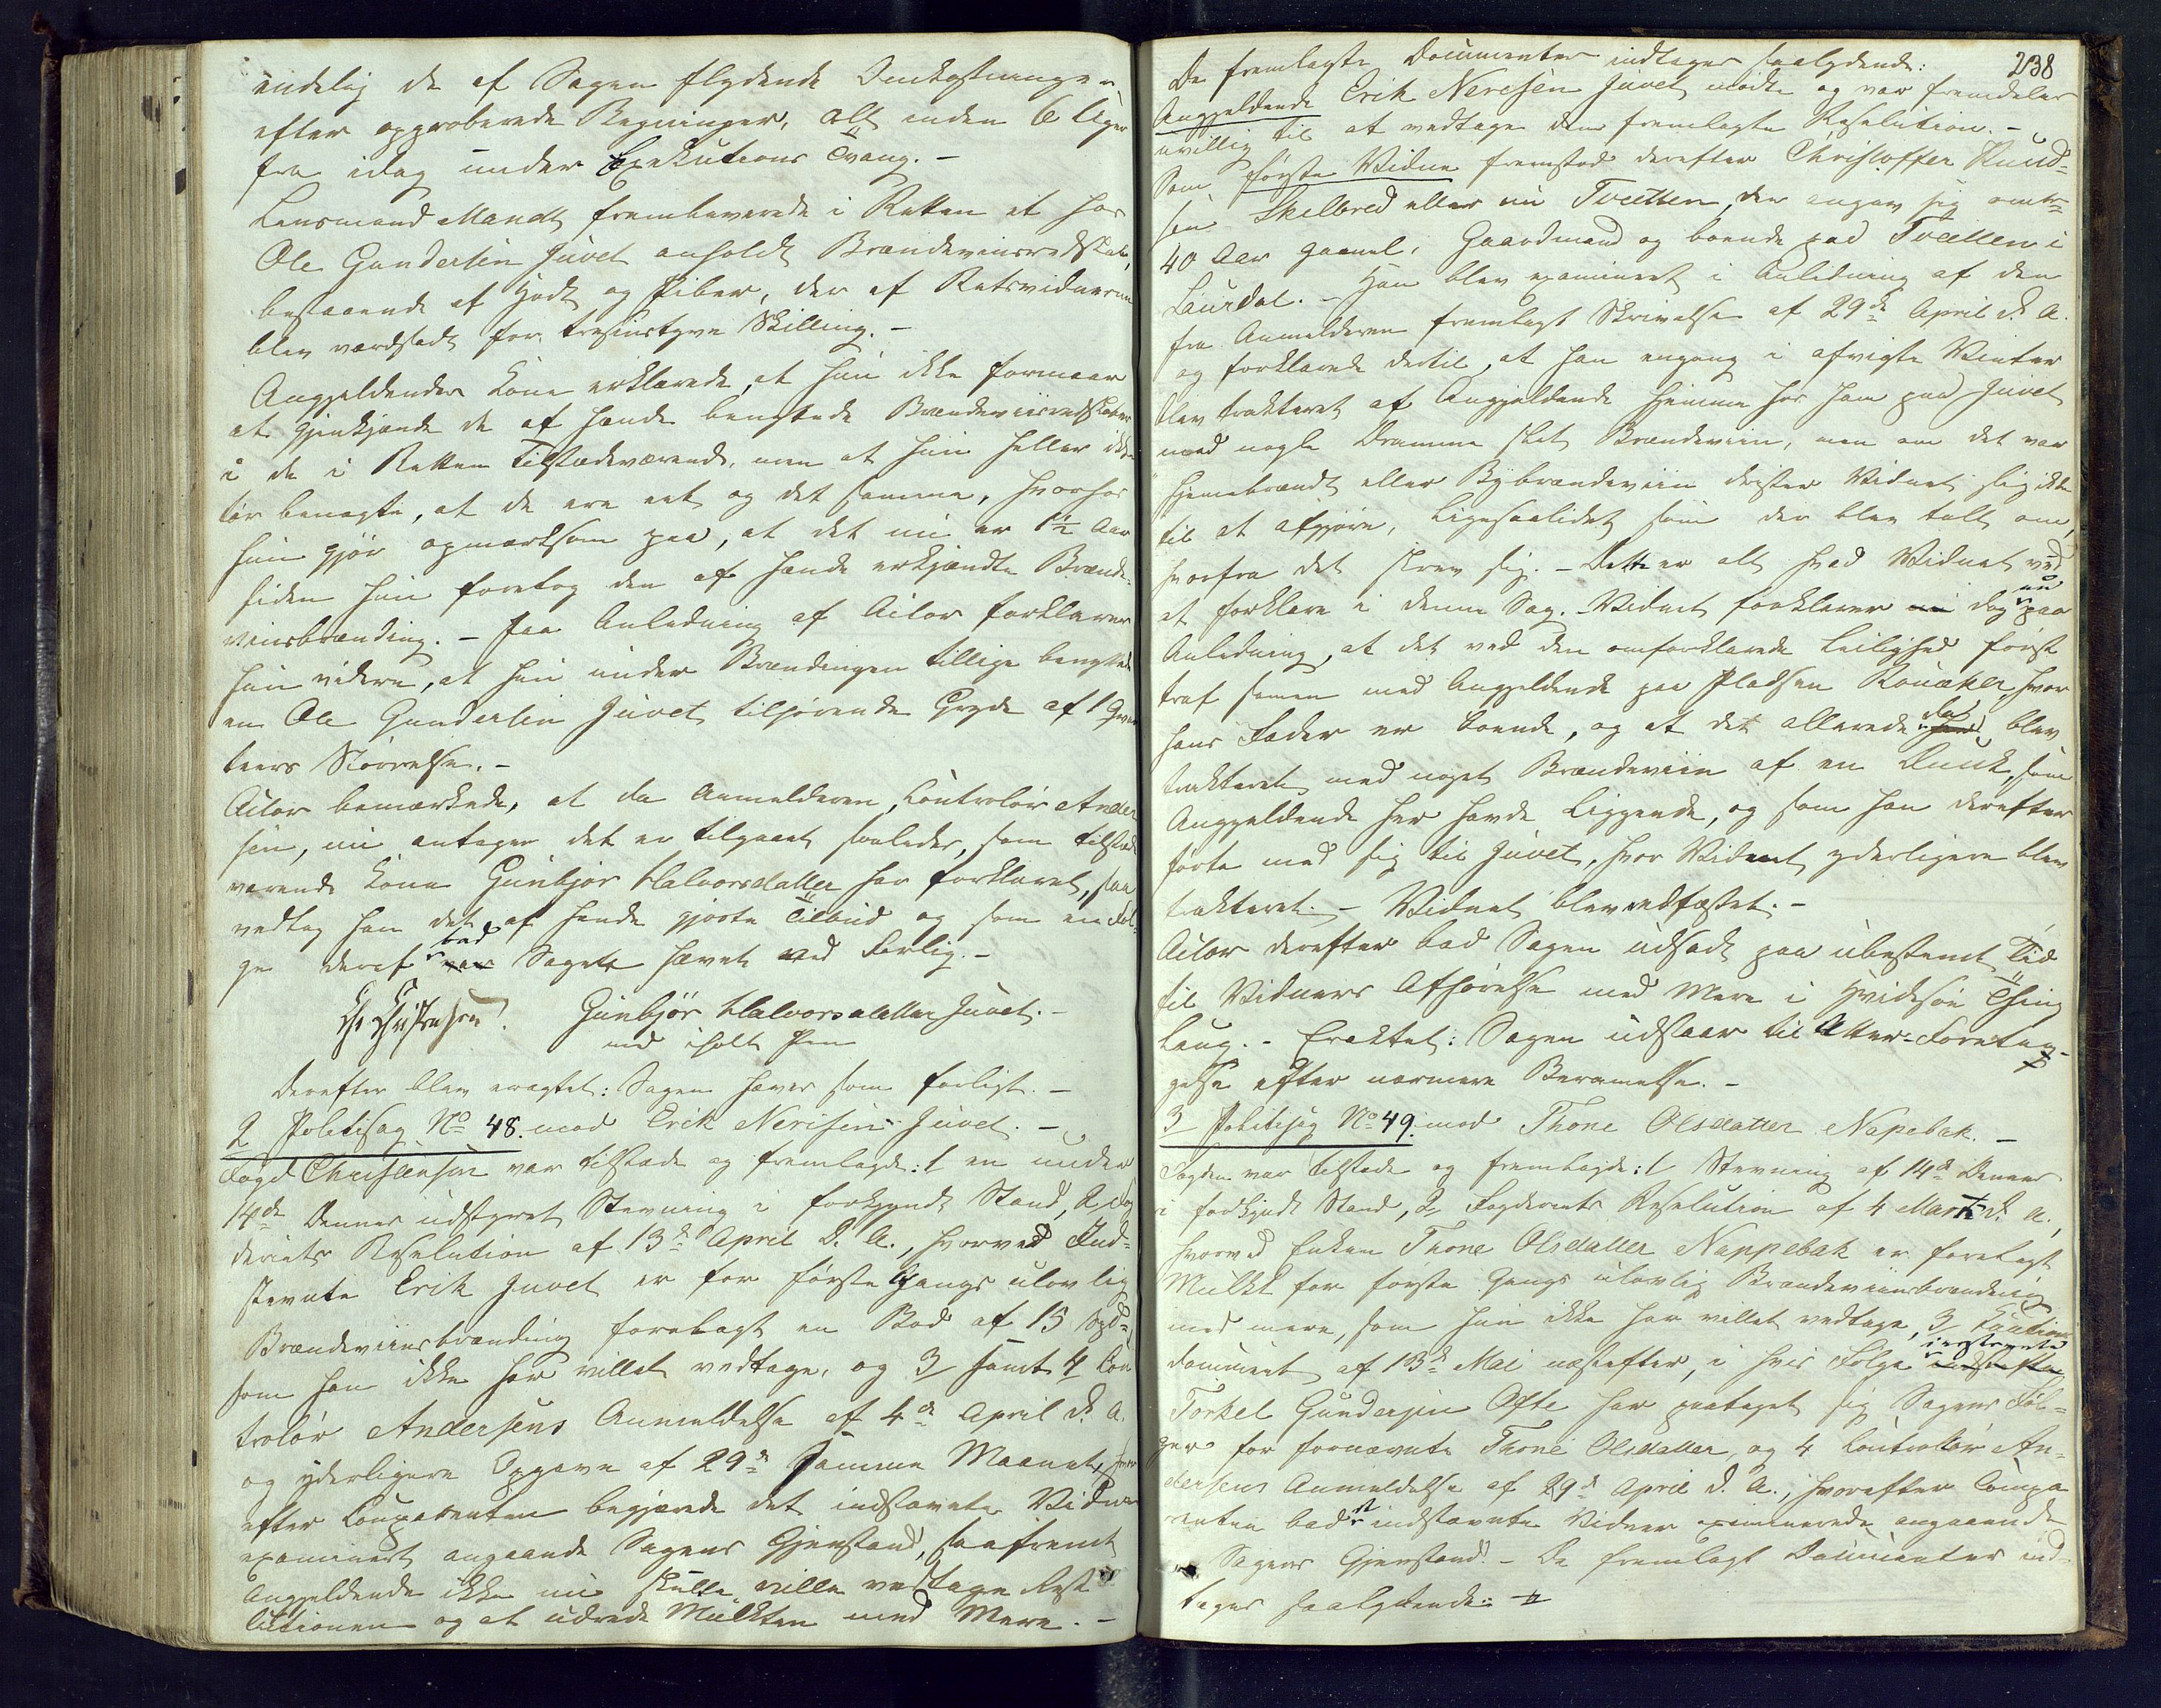 endelig de af Sagen flydende Omkostninger
efter approberede Regninger, Alt inden 6 Uger
fra idag under Exekutions Tvang. –
Lensmand Mandt fremleverede i Retten et hos
Ole Gundersen Juvet anholdt Brændeviinsredskab,
bestaaende af Hodt og Piber, der af Retsvidnerne
blev værdsadt for tresindstyve Skilling. –
Angjeldendes Kone erklærede, at hun ikke formaar
at gjenkjende de af hende benyttede Brændeviinsredskaber
i de i Retten Tilstædeværende, men at hun heller ikke
tør benægte, at de ere eet og det samme, hvorhos
hun gjør opmærksom paa, at det nu er 1½ Aar
siden hun foretog den af hende erkjendte Brænde-
viinsbrænding. – Paa Anledning af Actor forklarer
hun videre, at hun under Brændingen tillige benyttede
en Ole Gundersen Juvet tilhørende Gryde af 1 Qvar
teers Størrelse. –
Actor bemærkede, at da Anmelderen, Controlør Ander
sen, nu antager det er tilgaaet saaledes, som tilstæde
værende Kone Gunbjør Halvorsdatter har forklaret, saa
vedtog han det af hende gjorte Tilbud og som en Føl-
ge deraf bad Sagen hævet ved Forlig. –
Chr Christensen. Gunbjør Halvorsdatter Juvet. –
med iholdt Pen
Derefter blev eragtet: Sagen hæves som forligt. –
2 Politisag No 48. mod Erik Nerisen Juvet. –
Fogd Christensen var tilstæde og fremlagde: 1 en under
14de Dennes udstyret Stevning i forkyndt Stand, 2 Fog
deriets Resolution af 13de April d. A., hvorved Ind-
stevnte Erik Juvet er for første Gangs ulovlig
Brændeviinsbrænding forelagt en Bod af 15 Spd
som han ikke har villet vedtage, og 3/ samt 4 Con
trolør Andersens Anmeldelse af 4de April d. A.
og yderligere Opgave af 29de samme Maaned, hvor
efter Comparenten begjærede det indstævnte Vidne
examineret angaaende Sagens Gjenstand, saafremt
Angjeldende ikke nu skulde ville vedtage Reso
lutionen og at udrede Mulkten med Mere. –
238
De fremlagte Documenter indtages saalydende:
Angjeldende Erik Nerisen Juvet mødte og var fremdeles
uvillig til at vedtage den fremlagte Resolution. –
Som første Vidne fremstod derefter Christoffer Knud-
sen Skelbred eller nu Tveitten, der angav sig omtr
40 Aar gammel, Gaardmand og boende paa Tveitten i
Laurdal. – Han blev examineret i Anledning af den
fra Anmelderen fremlagt Skrivelse af 29de April d. A.
og forklarede dertil, at han engang i afvigte Vinter
blev trakteret af Angjeldende hjemme hos ham paa Juvet
med nogle Dramme slet Brændeviin, men om det var
hjemebrændt eller Bybrændeviin drister Vidnet sig ikke
til at afgjøre, ligesaalidet som der blev talt om,
hvorfra det skrev sig. – Dette er alt hvad Vidnet ved
at forklare i denne Sag. – Vidnet forklarer dog nu paa
Anledning, at det ved den omforklarede Leilighed først
traf samen med Angjeldende paa Pladsen Rouaker, hvor
hans Fader er boende, og at det allerede der blev
trakteret med noget Brændeviin af en Dunk, som
Angjeldende her havde liggende, og som han derefter
førte med sig til Juvet, hvor Vidnet yderligere blev
trakteret. – Vidnet blev eedfæstet. –
Actor derefter bad Sagen udsadt paa ubestemt Tid
til Vidners Afhørelse med Mere i Hvidesøe Thing
laug. – Eraktet: Sagen udstaar til Atter-Foretag-
gelse efter nærmere Berammelse. –
3 Politisag No 49. mod Thone Olsdatter Napebak. –
Fogden var tilstæde og fremlagde: 1 Stevning af 14de Dennes
i forkyndt Stand, 2 Fogderiets Resolution af 4 Marts d. A.,
hvorved Enken Thone Olsdatter Nappebak er forelagt
Mulkt for første Gangs ulovlig Brændeviinsbrænding
med mere, som hun ikke har villet vedtage, 3 Cautions
document af 13de Mai næstefter, i hvis Følge indstevnte
Torkel Gundersen Ofte har paataget sig Sagens Føl-
ger for fornævnte Thone Olsdatter, og 4 Controllør An-
dersens Anmeldelse af 29de April d. A., hvorefter Compa
renten bad indstævnte Vidner examinerede angaaende
Sagens Gjenstand. – De fremlagt Documenter ind-
tages saalydende: –